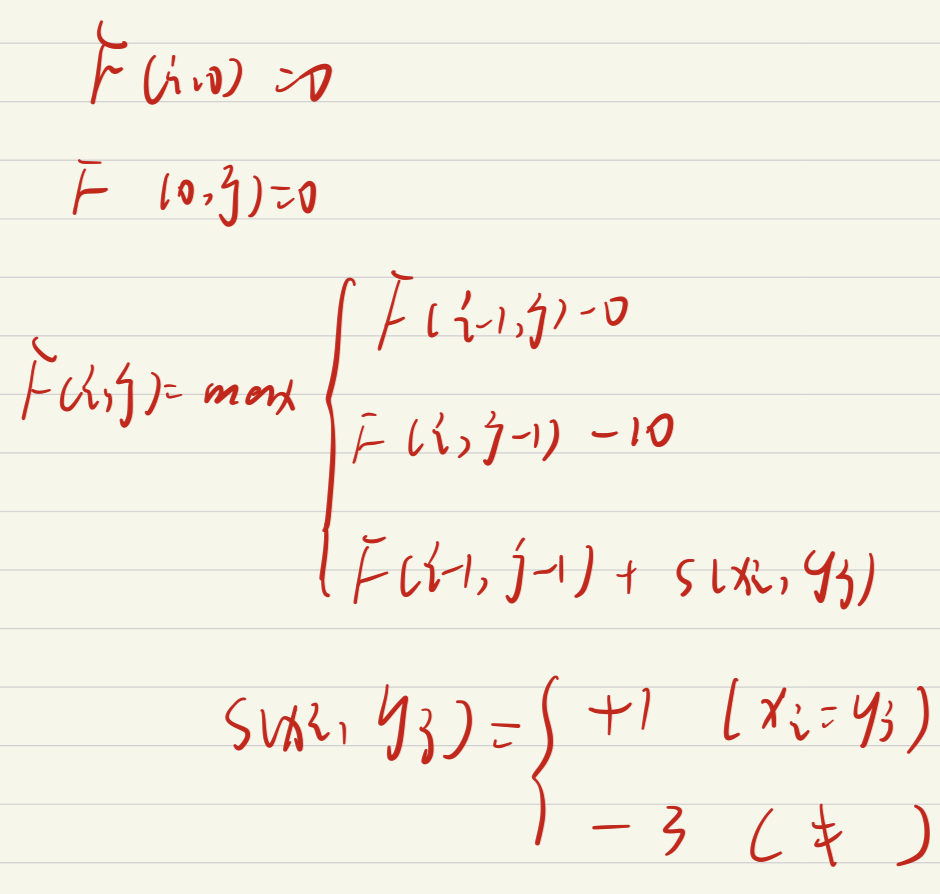 F(i,0)=0
F(0,j)=0
F(i,j)=max
F(i-1,j)-0
F(i,j-1)-10
F(i-1,j-1)+s(xi,yj)
s(xi,yj)= +1 (xi=yj)
-3 (≠ )